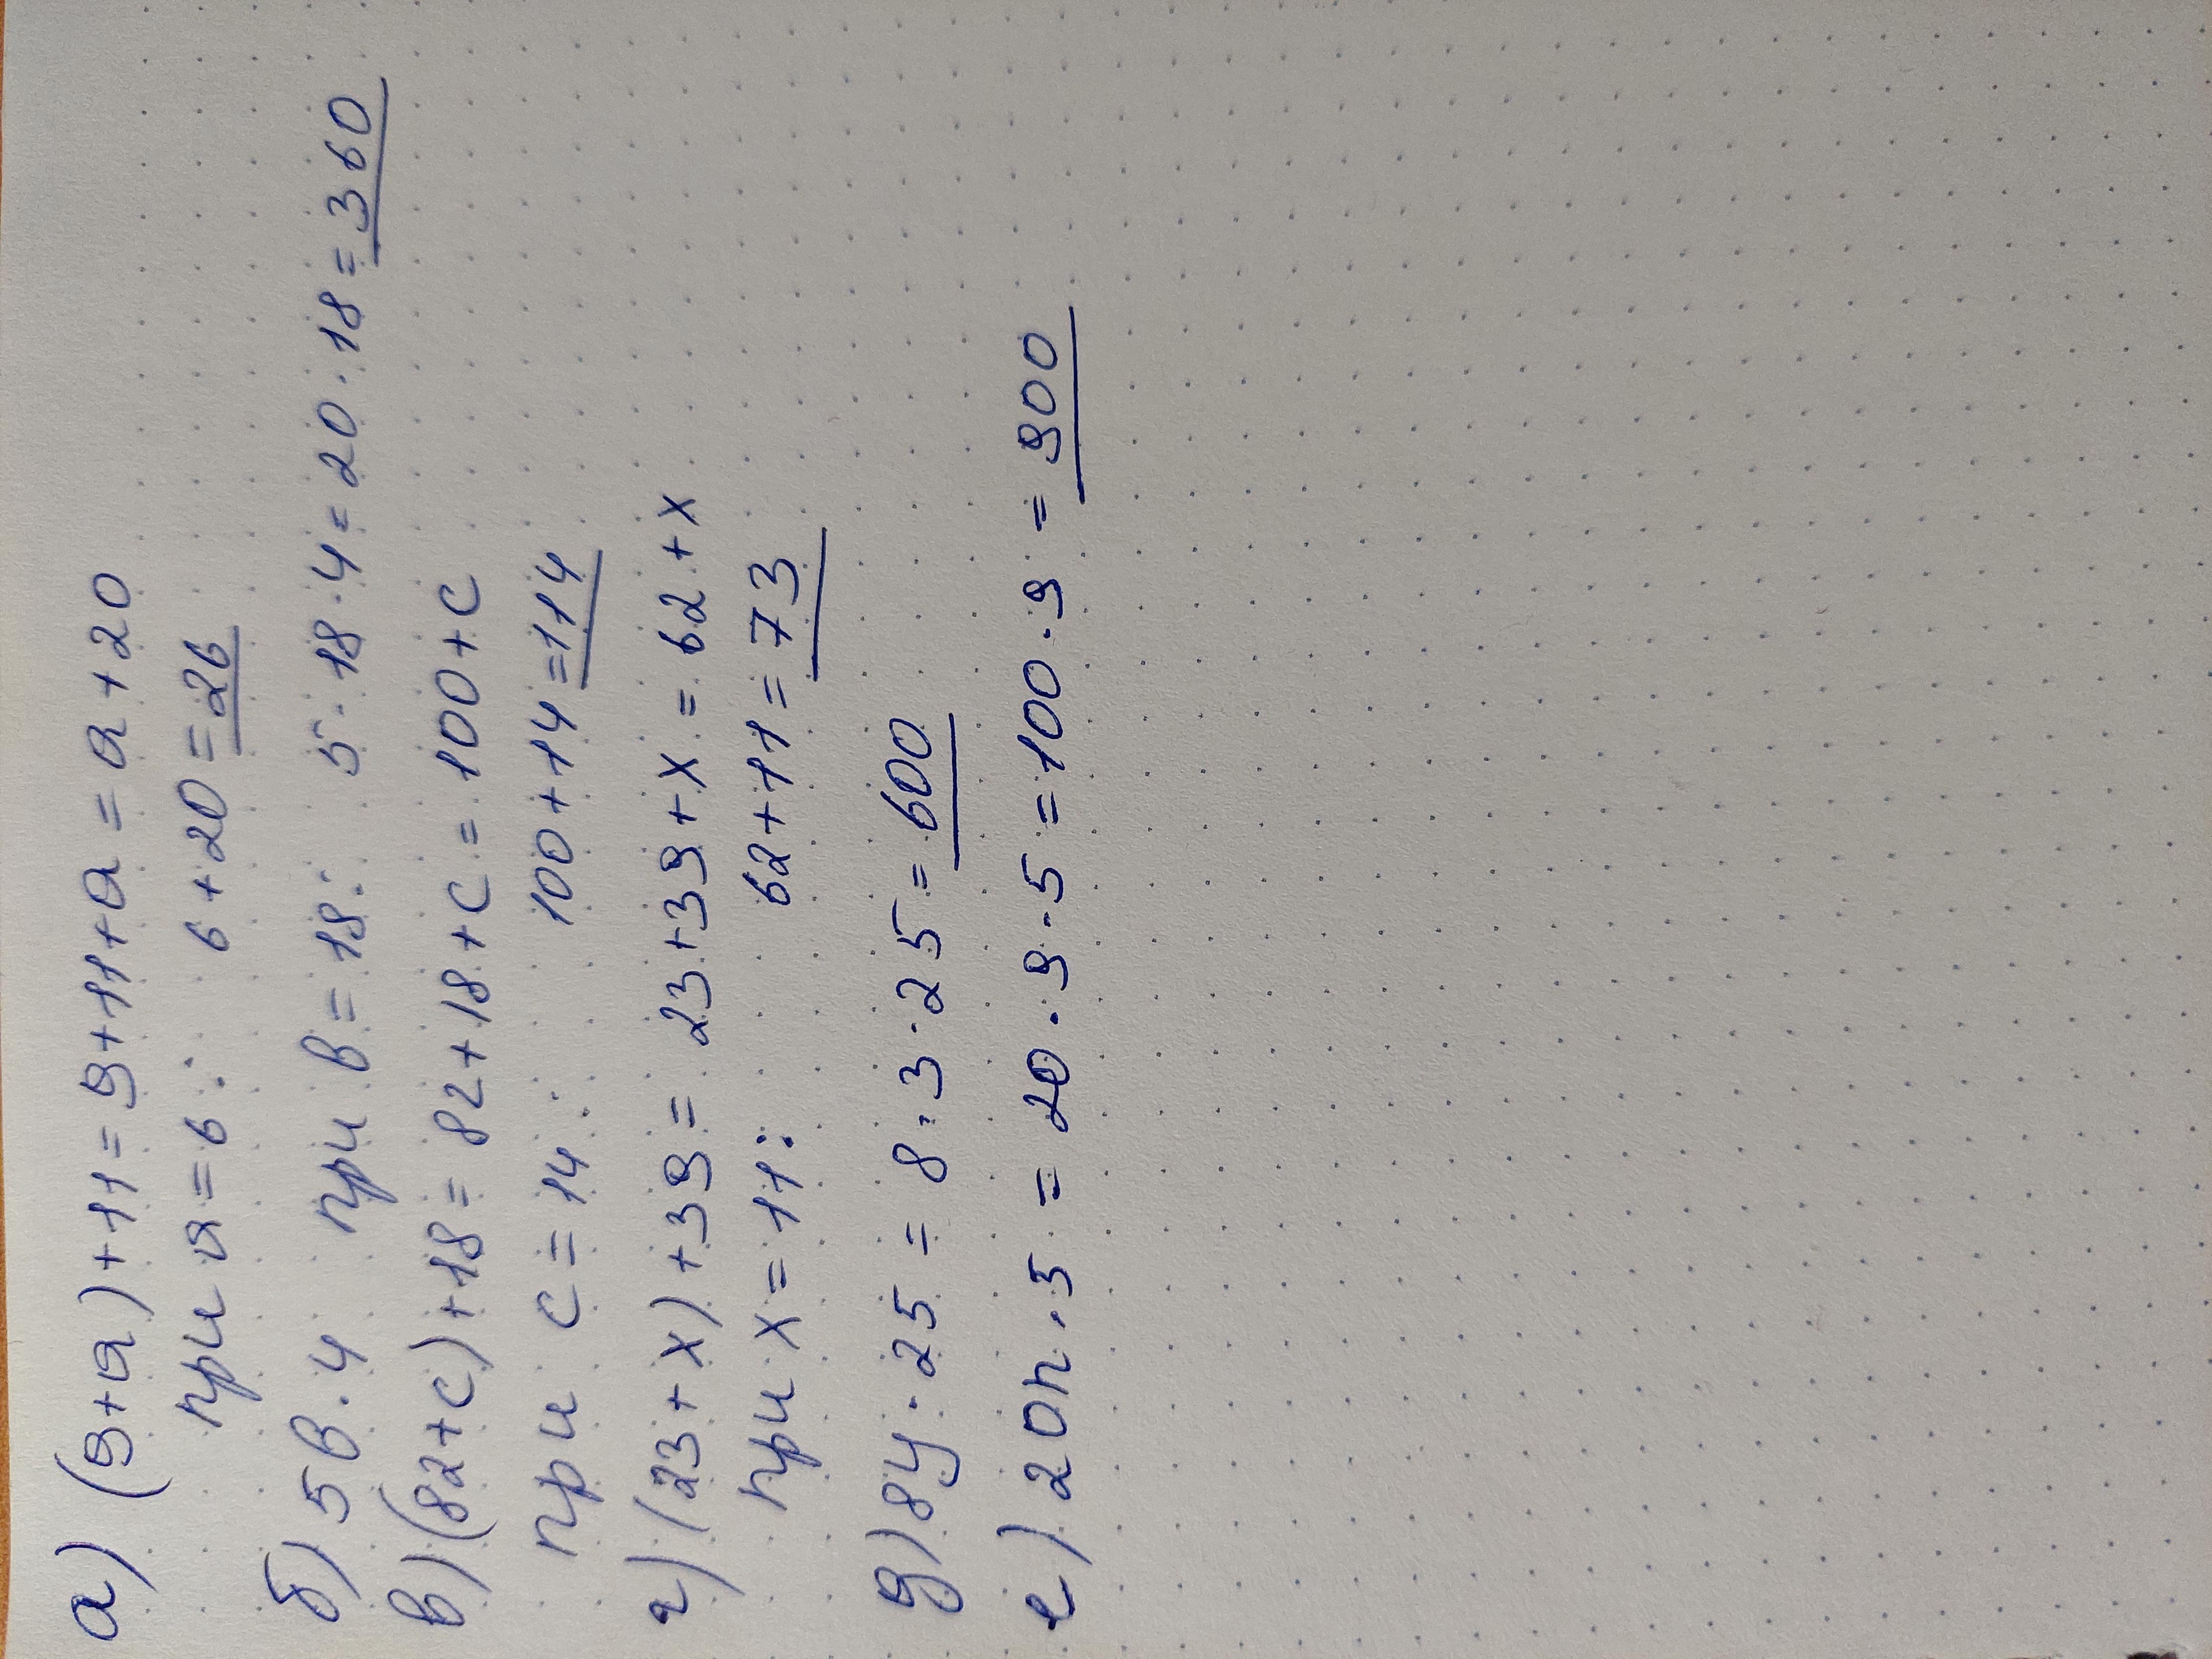 а) (9+a)+11=9+11+a=a+20
при a=6: 6+20=26
б) 5в·4 при в=18: 5·18·4=20·18=360
в) (82+c)+18=82+18+c=100+c
при c=14: 100+14=114
г) (23+x)+39=23+39+x=62+x
при x=11: 62+11=73
д) 8y·25=8·3·25=600
е) 20n·5=20·9·5=100·9=900